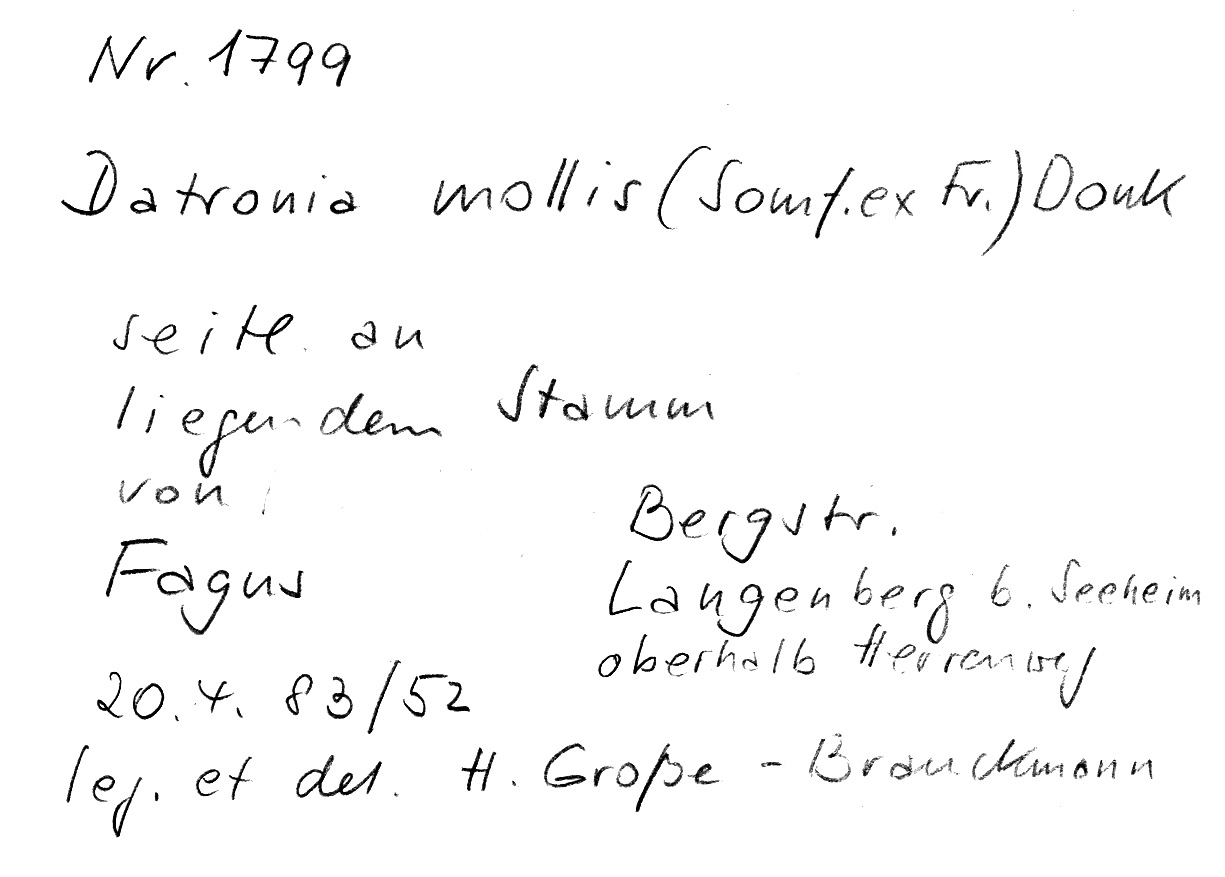 Nr. 1799
Datronia mollis (Somf. ex Fr.) Donk
seitl. an
liegendem Stamm
von
Fagus
Bergstr.
Langenberg b. Seeheim
oberhalb Herrenweg
20.4. 83/52
leg. et det. H. Große - Brauckmann